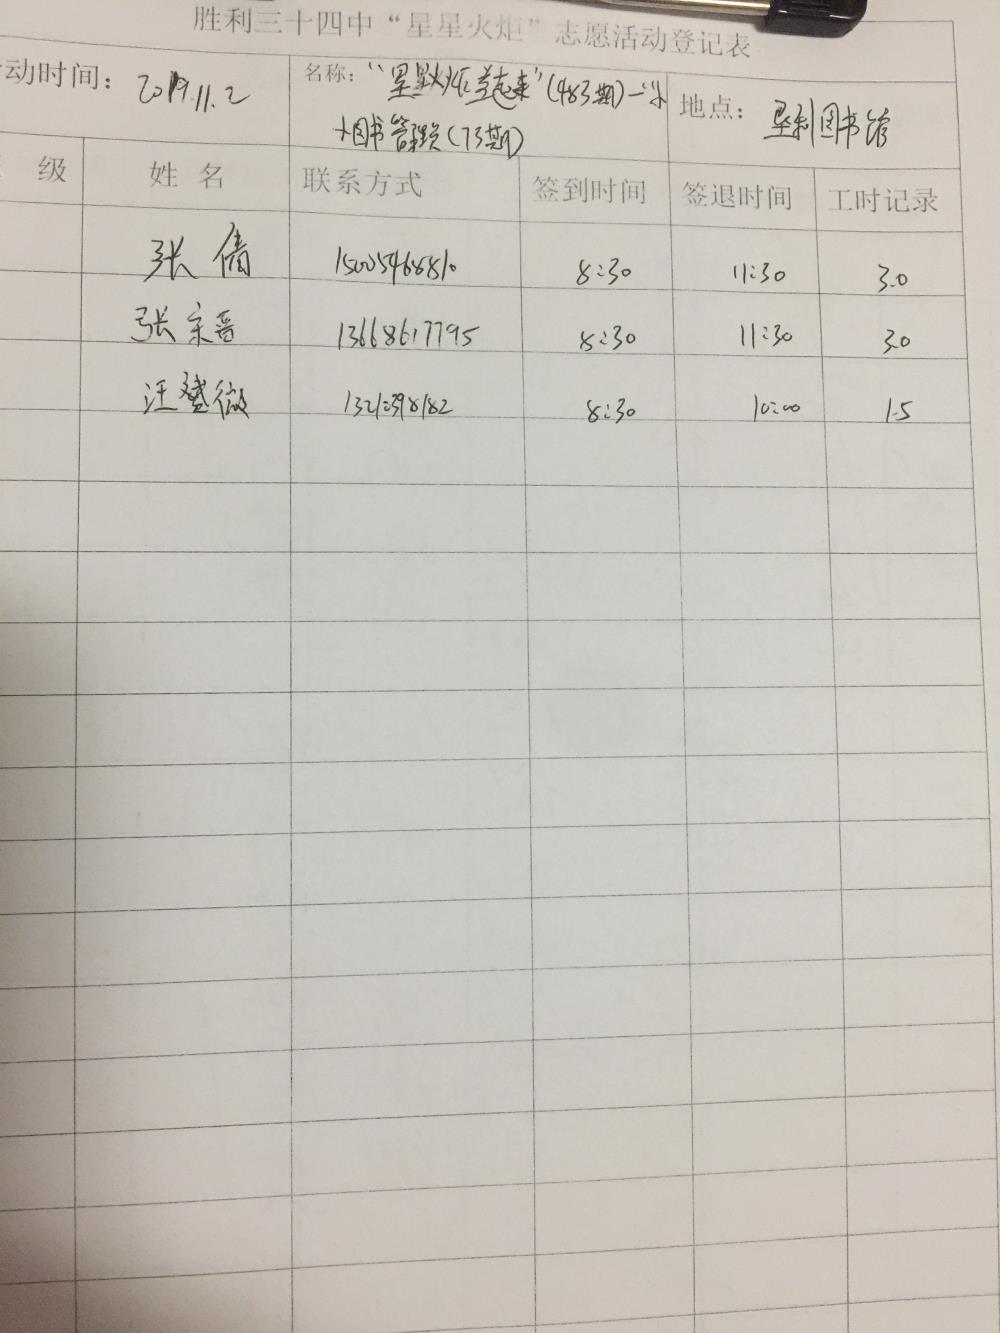 胜利三十四中“星星火炬”志愿活动登记表
动时间： 2019.11.2 名称：“星星火炬 起来”(483期)—“小 地点： 垦利图书馆
小图书管理员(73期)
级 姓名 联系方式 签到时间 签退时间 工时记录
张倩 8:30 11:30 3.0
张宗晋 13668617795 8:30 11:30 3.0
汪 薇 8:30 10:00 1.5